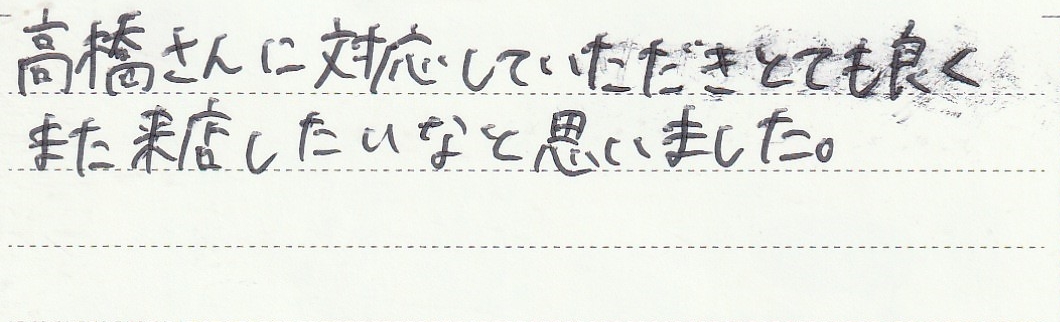 高橋さんに対応していただきとても良く
また来店したいなと思いました。